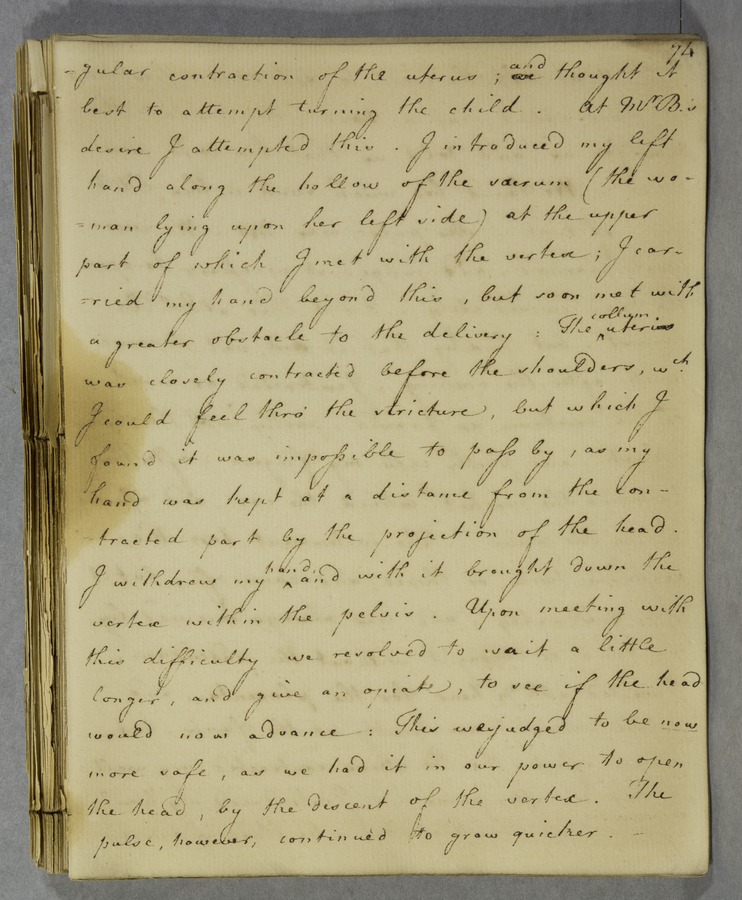 74
-gular contraction of the uterus ; and we thought it
best to attempt turning the child . At Mr B.'s
desire I attempted this . I introduced my left
hand along the hollow of the sacrum ( the wo-
=man lying upon her left side ) at the upper
part of which I met with the vertex ; I car-
=ried my hand beyond this , but soon met with
a greater obstacle to the delivery : The collum uteri
was closely contracted before the shoulders, wch.
I could feel thro' the stricture, but which I
found it was impossible to pass by , as my
hand was kept at a distance from the con-
tracted part by the projection of the head .
I withdrew my hand, and with it brought down the
vertex within the pelvis . Upon meeting with
this difficulty we resolved to wait a little
longer, and give an opiate, to see if the head
would now advance : This we judged to be now
more safe , as we had it in our power to open
the head, by the descent of the vertex . The
pulse, however, continued to grow quicker . -